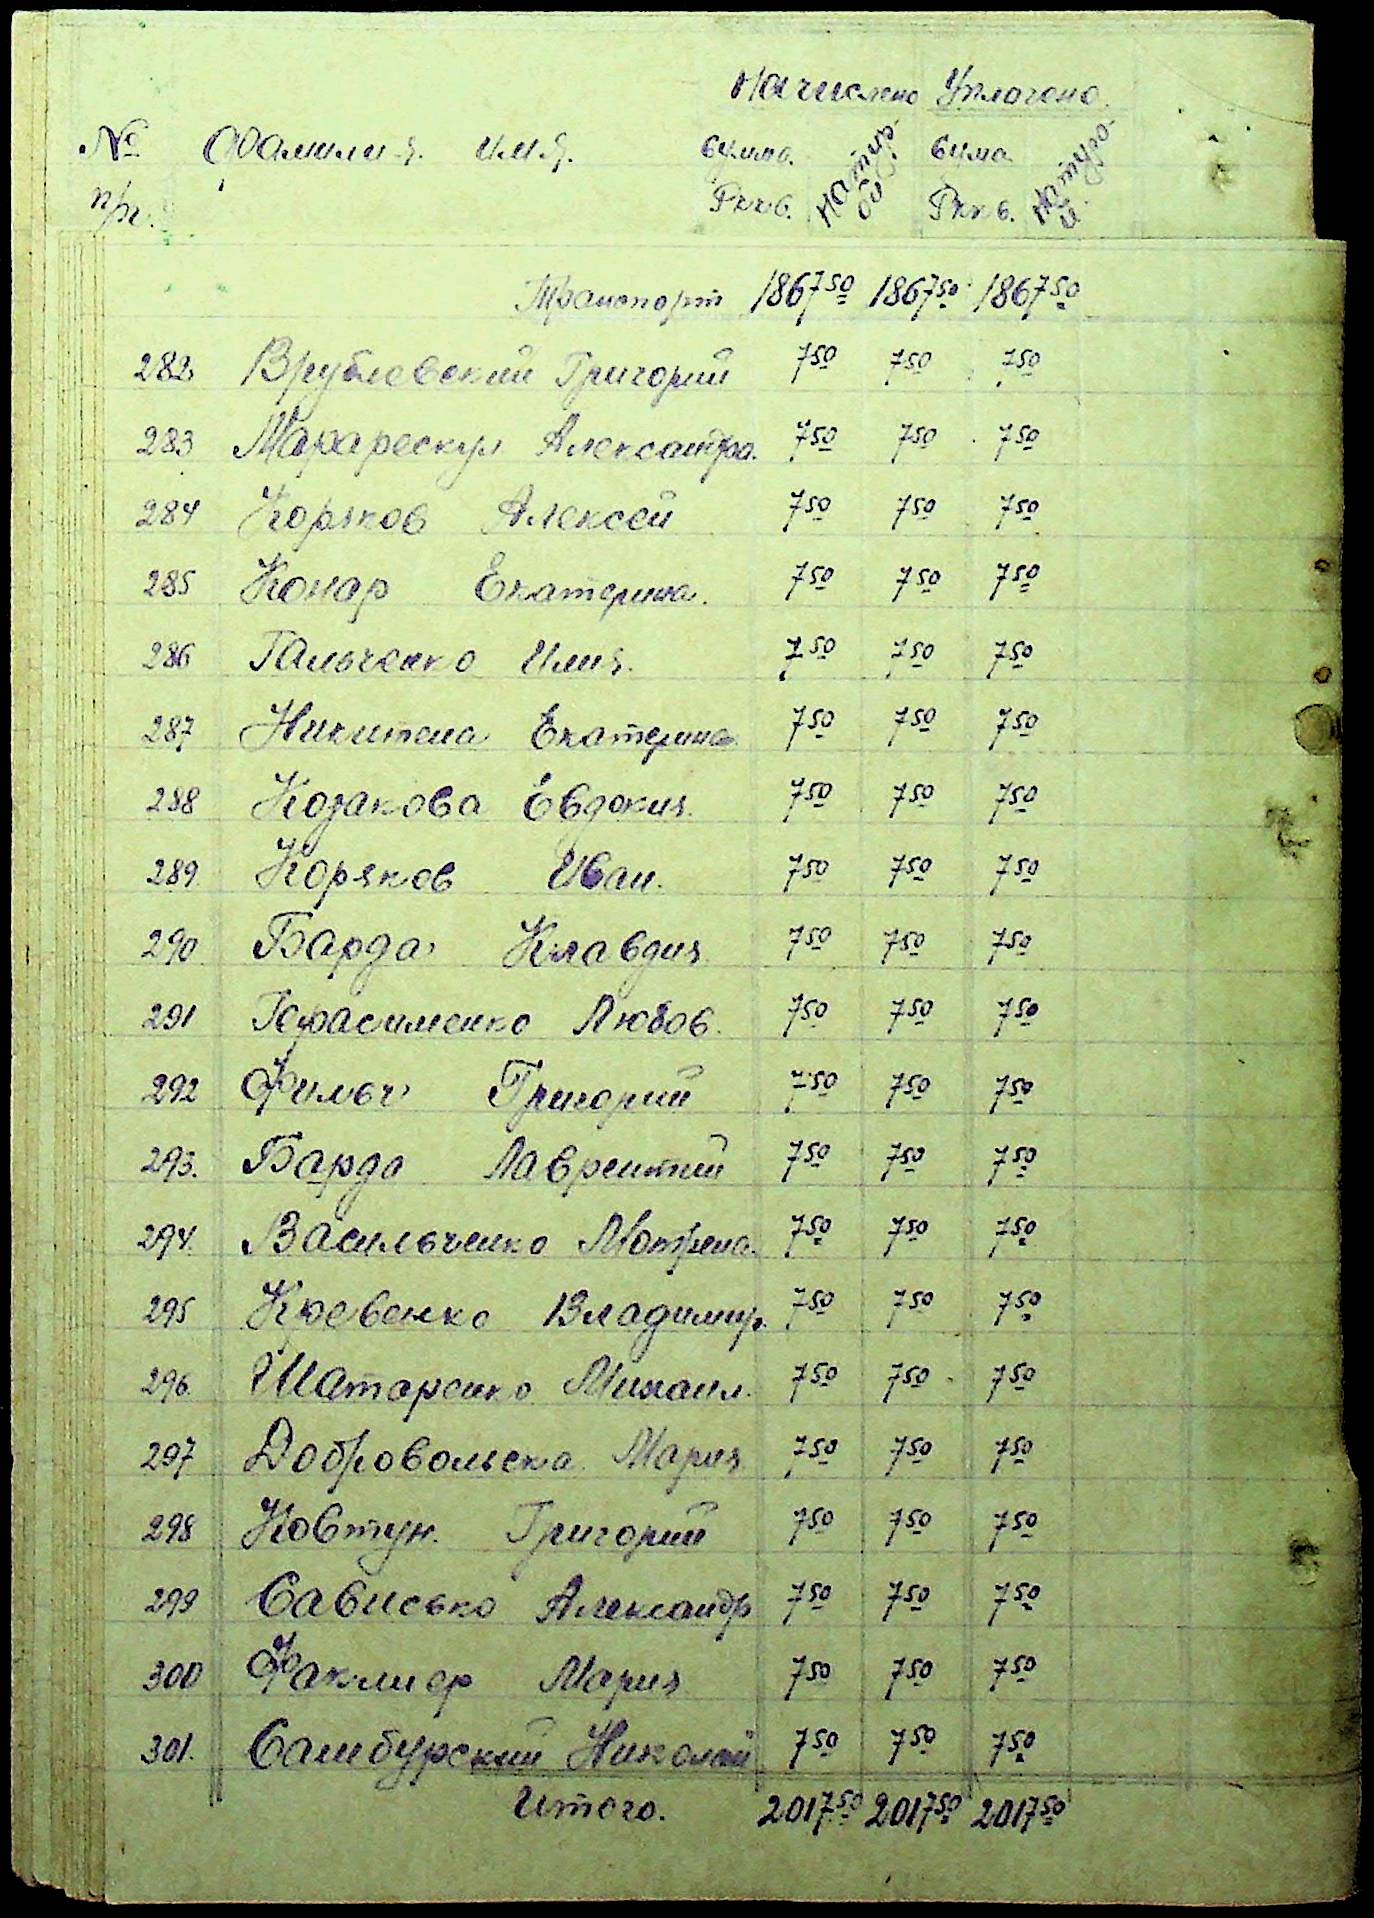 Начислено Уплочено.
№ Фамилия. имя. сума. сума
п/п. Рккв. Ркк в.
Транспорт 1867 50 1867 50 1867 50
282 Врублевский Григорий 7 50 7 50 7 50
283 Марарескул Александра. 7 50 7 50 7 50
284 Коряков Алексей 7 50 7 50 7 50
285 Конар Екатерина. 7 50 7 50 7 50
286 Гальченко Илия. 7 50 7 50 7 50
287 Никитена Екатерина 7 50 7 50 7 50
288 Козакова Евдокия. 7 50 7 50 7 50
289 Коряков Иван. 7 50 7 50 7 50
290 Барда Клавдия 7 50 7 50 7 50
291 Герасименко Любов. 7 50 7 50 7 50
292 Фильч Григорий 7 50 7 50 7 50
293. Барда Лаврентий 7 50 7 50 7 50
294. Васильченко Мотрена. 7 50 7 50 7 50
295 Кревенко Владимир. 7 50 7 50 7 50
296. Шатаренко Михаил. 7 50 7 50 7 50
297 Добровольска Мария 7 50 7 50 7 50
298 Ковтун. Григорий 7 50 7 50 7 50
299 Сависько Александр 7 50 7 50 7 50
300 Факлиер Мария 7 50 7 50 7 50
301. Самбурский Николай 7 50 7 50 7 50
Итого. 2017 50 2017 50 2017 50